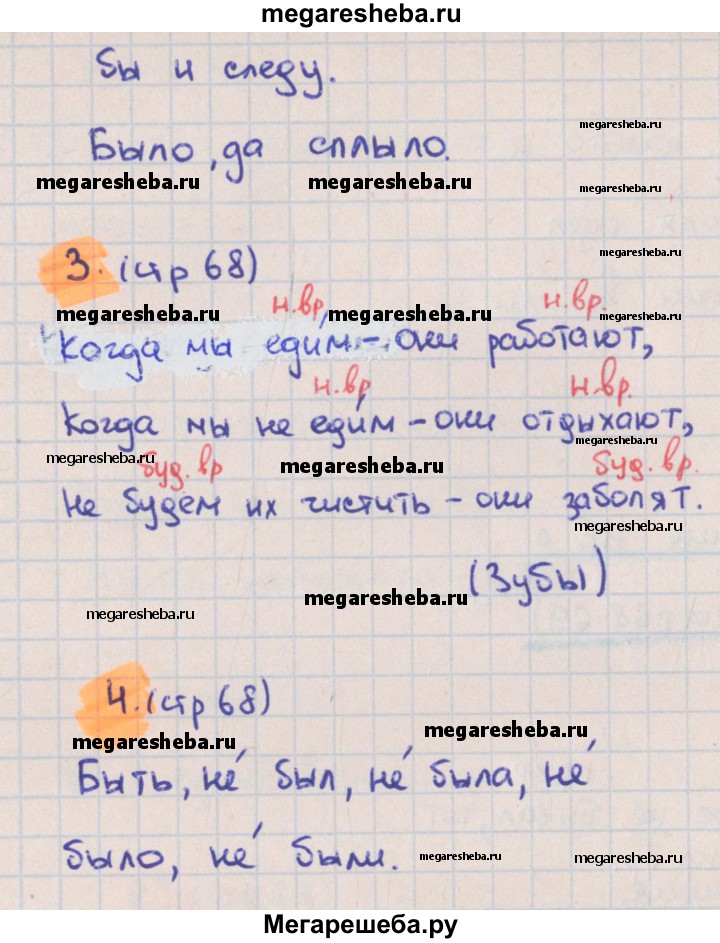 megaresheba.ru
бы и следу.
megaresheba.ru
Было, да сплыло.
megaresheba.ru megaresheba.ru
megaresheba.ru
3. (стр 68)
megaresheba.ru
н.вр. н.вр.
megaresheba.ru megaresheba.ru megaresheba.ru
Когда мы еди́м – они работают,
н.вр. н.вр.
Когда мы не еди́м – они отдыхают,
megaresheba.ru
megaresheba.ru
буд. вр. буд. вр.
megaresheba.ru
Не будем их чистить – они заболят.
megaresheba.ru
(Зубы)
megaresheba.ru
megaresheba.ru
4. (стр 68)
megaresheba.ru
megaresheba.ru
Быть, не́ был, не́ была, не́
было, не́ были.
megaresheba.ru megaresheba.ru
Мегарешеба.ру